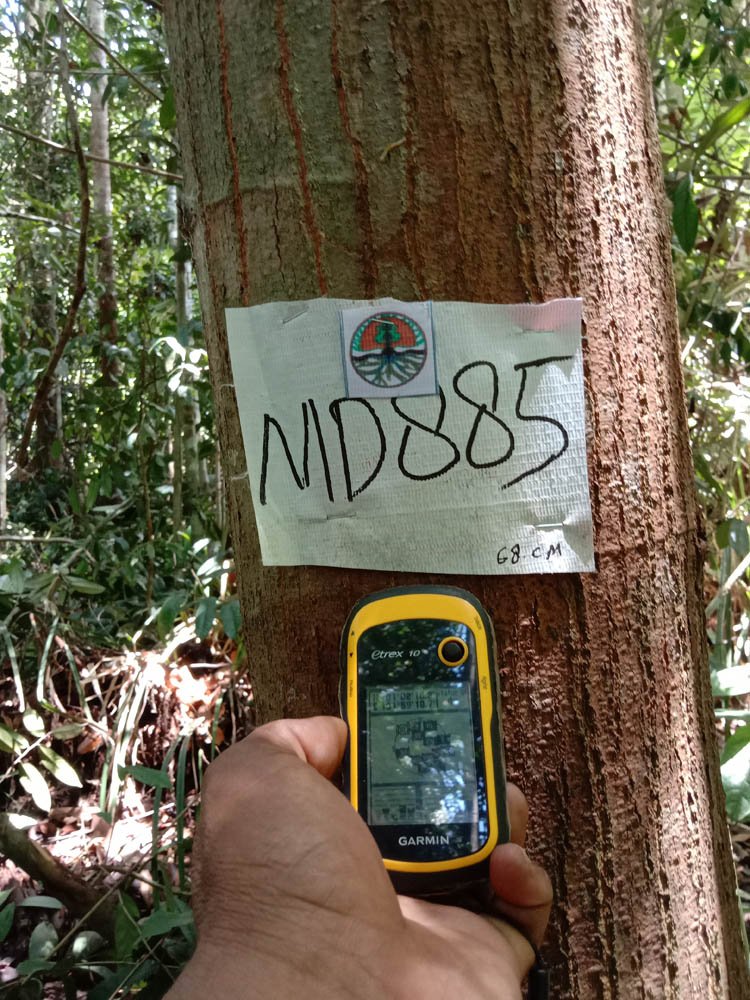 MD885
68 CM
etrex 10
GARMIN